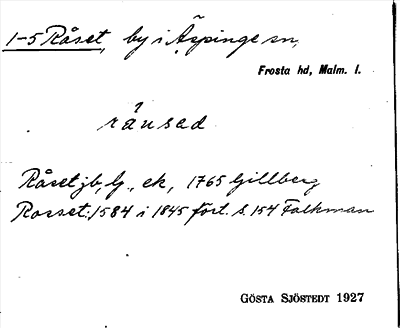 1-5 Råset, by i Äspinge sn,
Frosta hd, Malm. l.
rånsad
Råset jb, Gj., ek, 1765 Gillberg
Rosset: 1584 i 1845 fört. s. 154 Falkman
GÖSTA SJÖSTEDT 1927